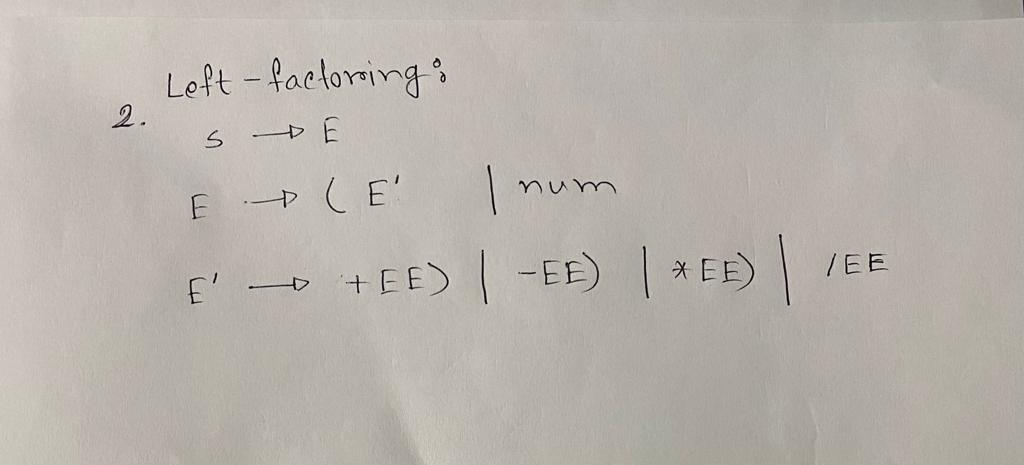 Left-factoring:
2.
S → E
E → ( E' | num
E' → +EE) | -EE) | *EE) | /EE